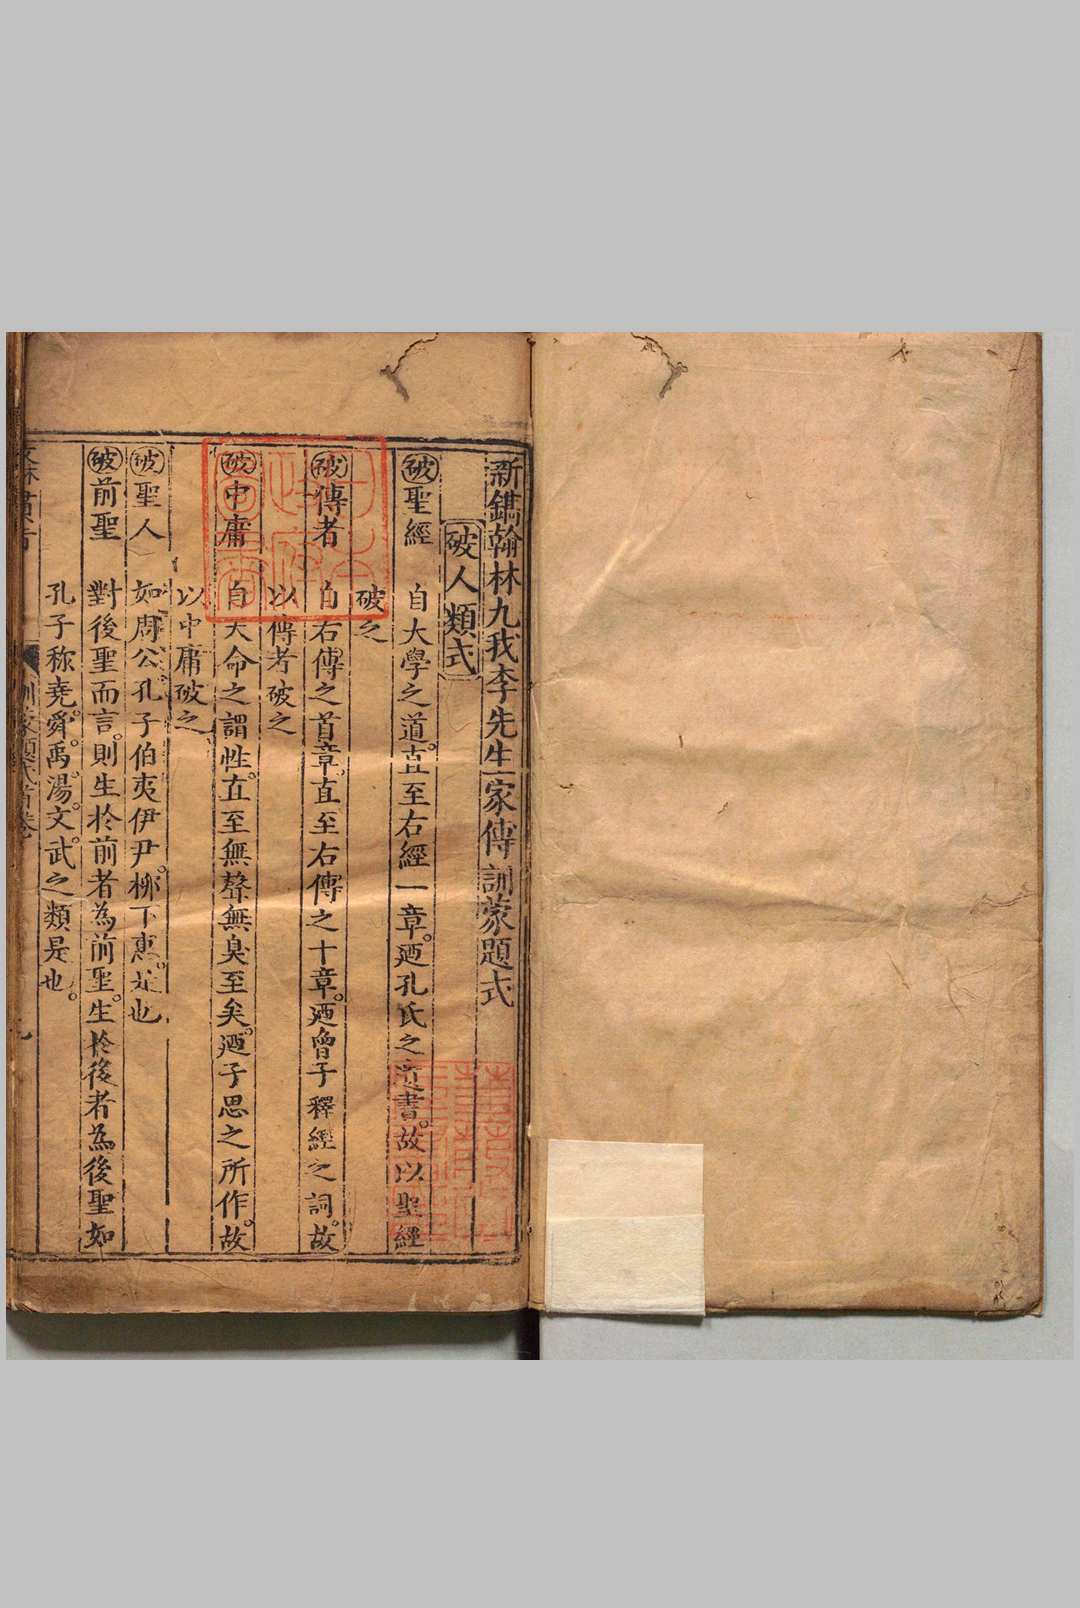 新鐫翰林九我李先生家傳訓蒙題式
破人類式
破聖經 自大學之道。直至右經一章。廼孔氏之遺書。故以聖經
破之
破傳者 自右傳之首章。直至右傳之十章。廼曾子釋經之詞。故
以傳者破之
破中庸 自天命之謂性。直至無聲無臭至矣。廼子思之所作。故
以中庸破之
破聖人 如周公孔子伯夷伊尹。柳下惠。是也
破前聖 對後聖而言。則生於前者為前聖。生於後者為後聖如
孔子称堯。舜。禹。湯。文。武之類是也。